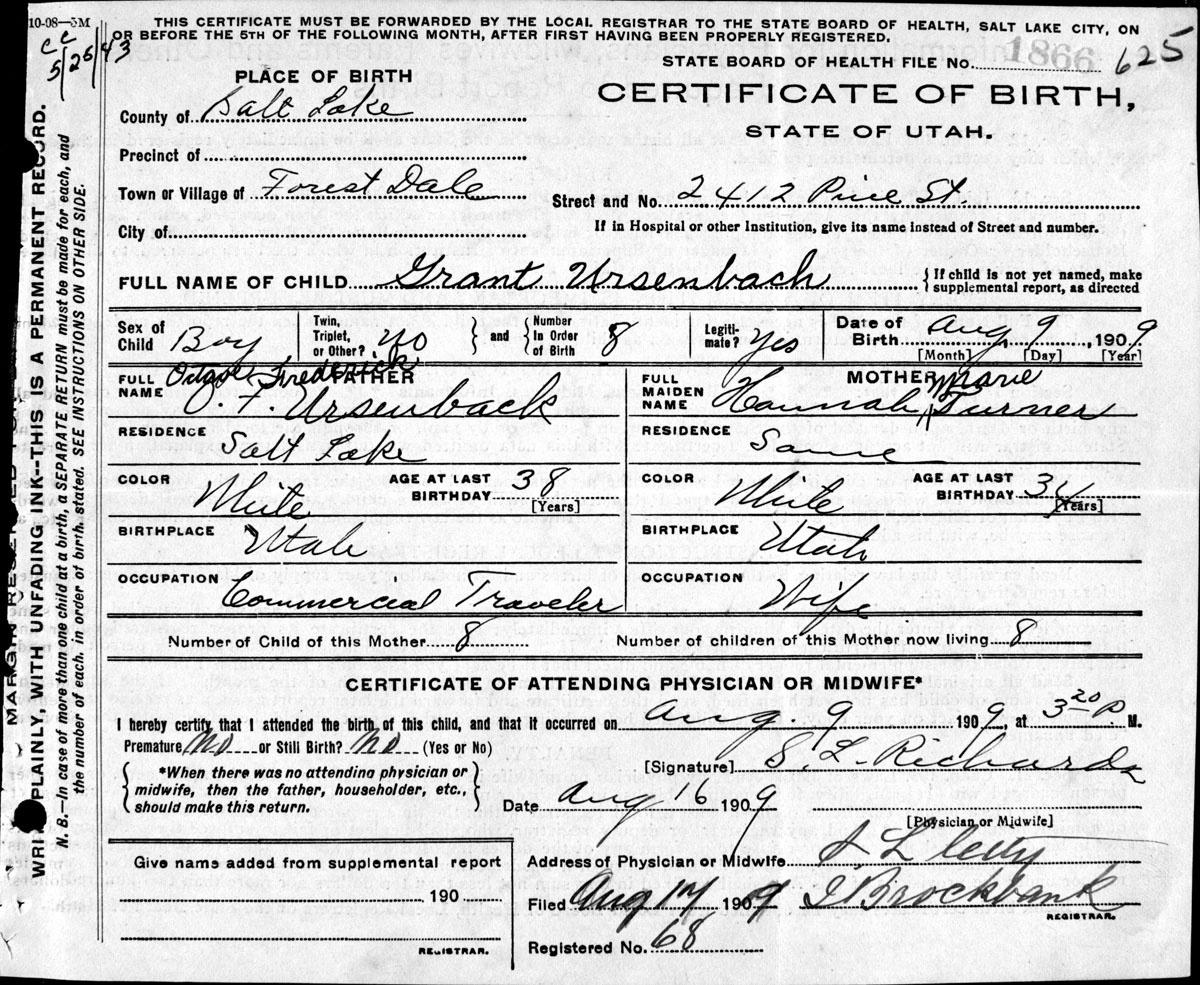 10-08—5M
cc
5/26/43
THIS CERTIFICATE MUST BE FORWARDED BY THE LOCAL REGISTRAR TO THE STATE BOARD OF HEALTH, SALT LAKE CITY, ON
OR BEFORE THE 5TH OF THE FOLLOWING MONTH, AFTER FIRST HAVING BEEN PROPERLY REGISTERED.
STATE BOARD OF HEALTH FILE No. 1866 625
PLACE OF BIRTH
CERTIFICATE OF BIRTH,
STATE OF UTAH.
County of Salt Lake
Precinct of
Town or Village of Forest Dale
Street and No. 2412 St.
City of
If in Hospital or other Institution, give its name instead of Street and number.
FULL NAME OF CHILD Grant Ursenbach
{If child is not yet named, make
supplemental report, as directed
Sex of Child Boy
Twin, Triplet, or Other? No
} and {
Number In Order of Birth 8
Legitimate? Yes
Date of Birth Aug 9, 1909
[Month] [Day] [Year]
FATHER
Frederick
FULL NAME O. F. Ursenback
RESIDENCE
Salt Lake
COLOR White
AGE AT LAST BIRTHDAY 38
[Years]
BIRTHPLACE
Utah
OCCUPATION
Commercial Traveler
MOTHER
Marie
FULL MAIDEN NAME Hannah Turner
RESIDENCE
Same
COLOR White
AGE AT LAST BIRTHDAY 34
[Years]
BIRTHPLACE
Utah
OCCUPATION
Wife
Number of Child of this Mother 8
Number of children of this Mother now living 8
CERTIFICATE OF ATTENDING PHYSICIAN OR MIDWIFE*
I hereby certify, that I attended the birth of this child, and that it occurred on Aug. 9 1909, at 3 20 P M.
Premature No or Still Birth? No (Yes or No)
{*When there was no attending physician or
midwife, then the father, householder, etc.,
should make this return.}
[Signature] S. L. Richards
Date Aug 16 1909
[Physician or Midwife]
Give name added from supplemental report
190
REGISTRAR.
Address of Physician or Midwife S L City
Filed Aug 17 1909 J Brockbank
REGISTRAR.
Registered No. 68
WRITE PLAINLY, WITH UNFADING INK--THIS IS A PERMANENT RECORD.
N. B.—In case of more than one child at a birth, a SEPARATE RETURN must be made for each, and
the number of each, in order of birth, stated. SEE INSTRUCTIONS ON OTHER SIDE.